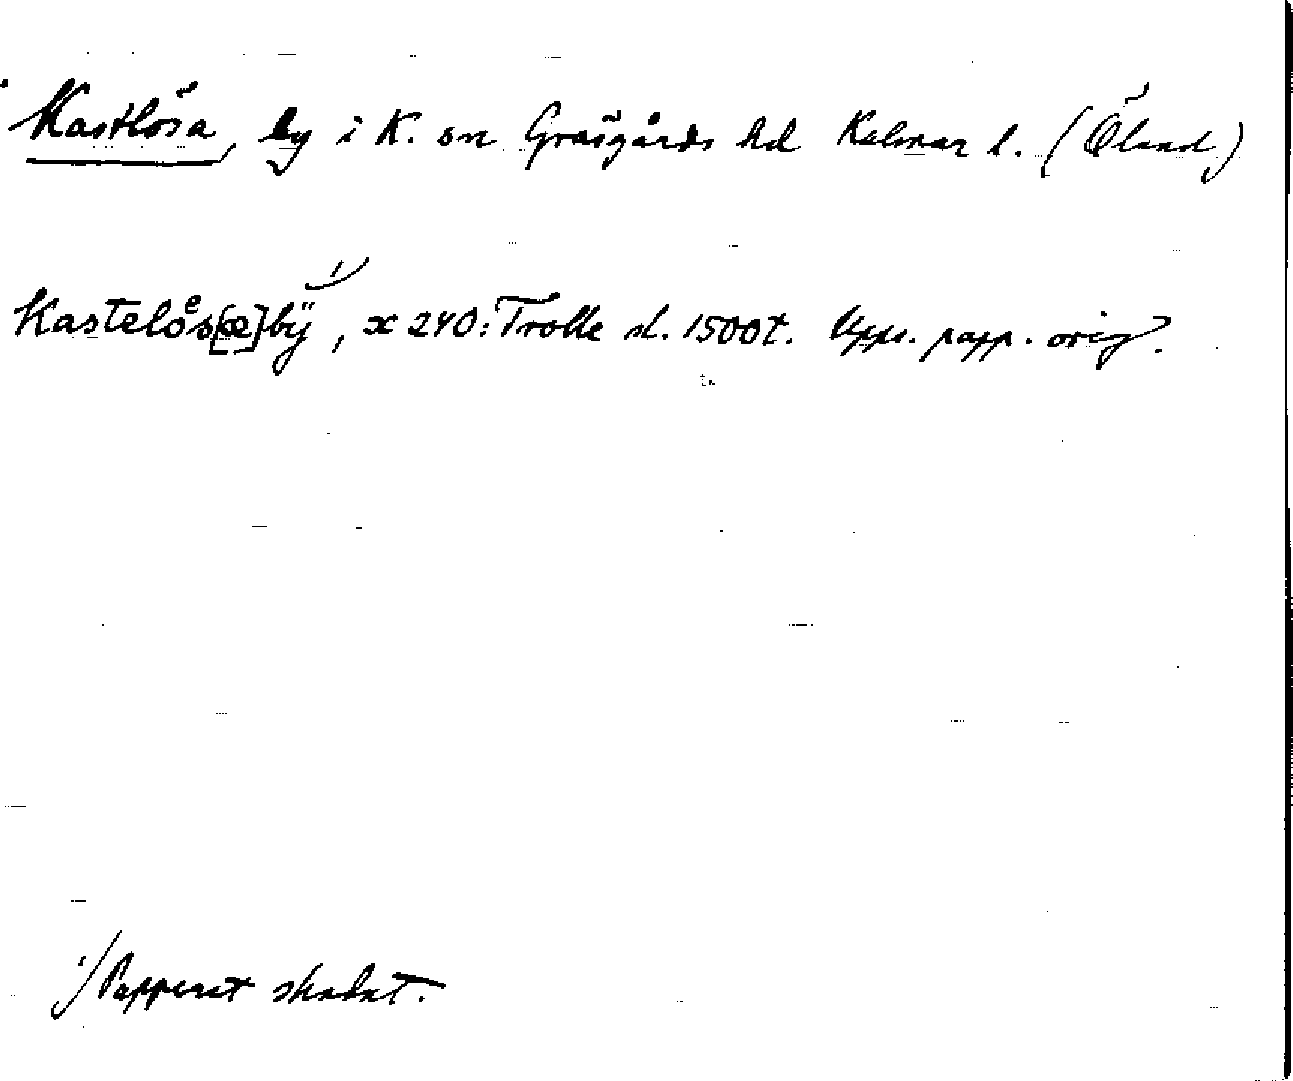 Kastlösa, by i K. sn Gräsgårds hd Kalmar l. (Öland)
Kasteloͤs[æ]bÿ ¹⁾, x 240: Trolle sl. 1500t. Upps. papp. orig.
¹⁾ Papperet skadat.